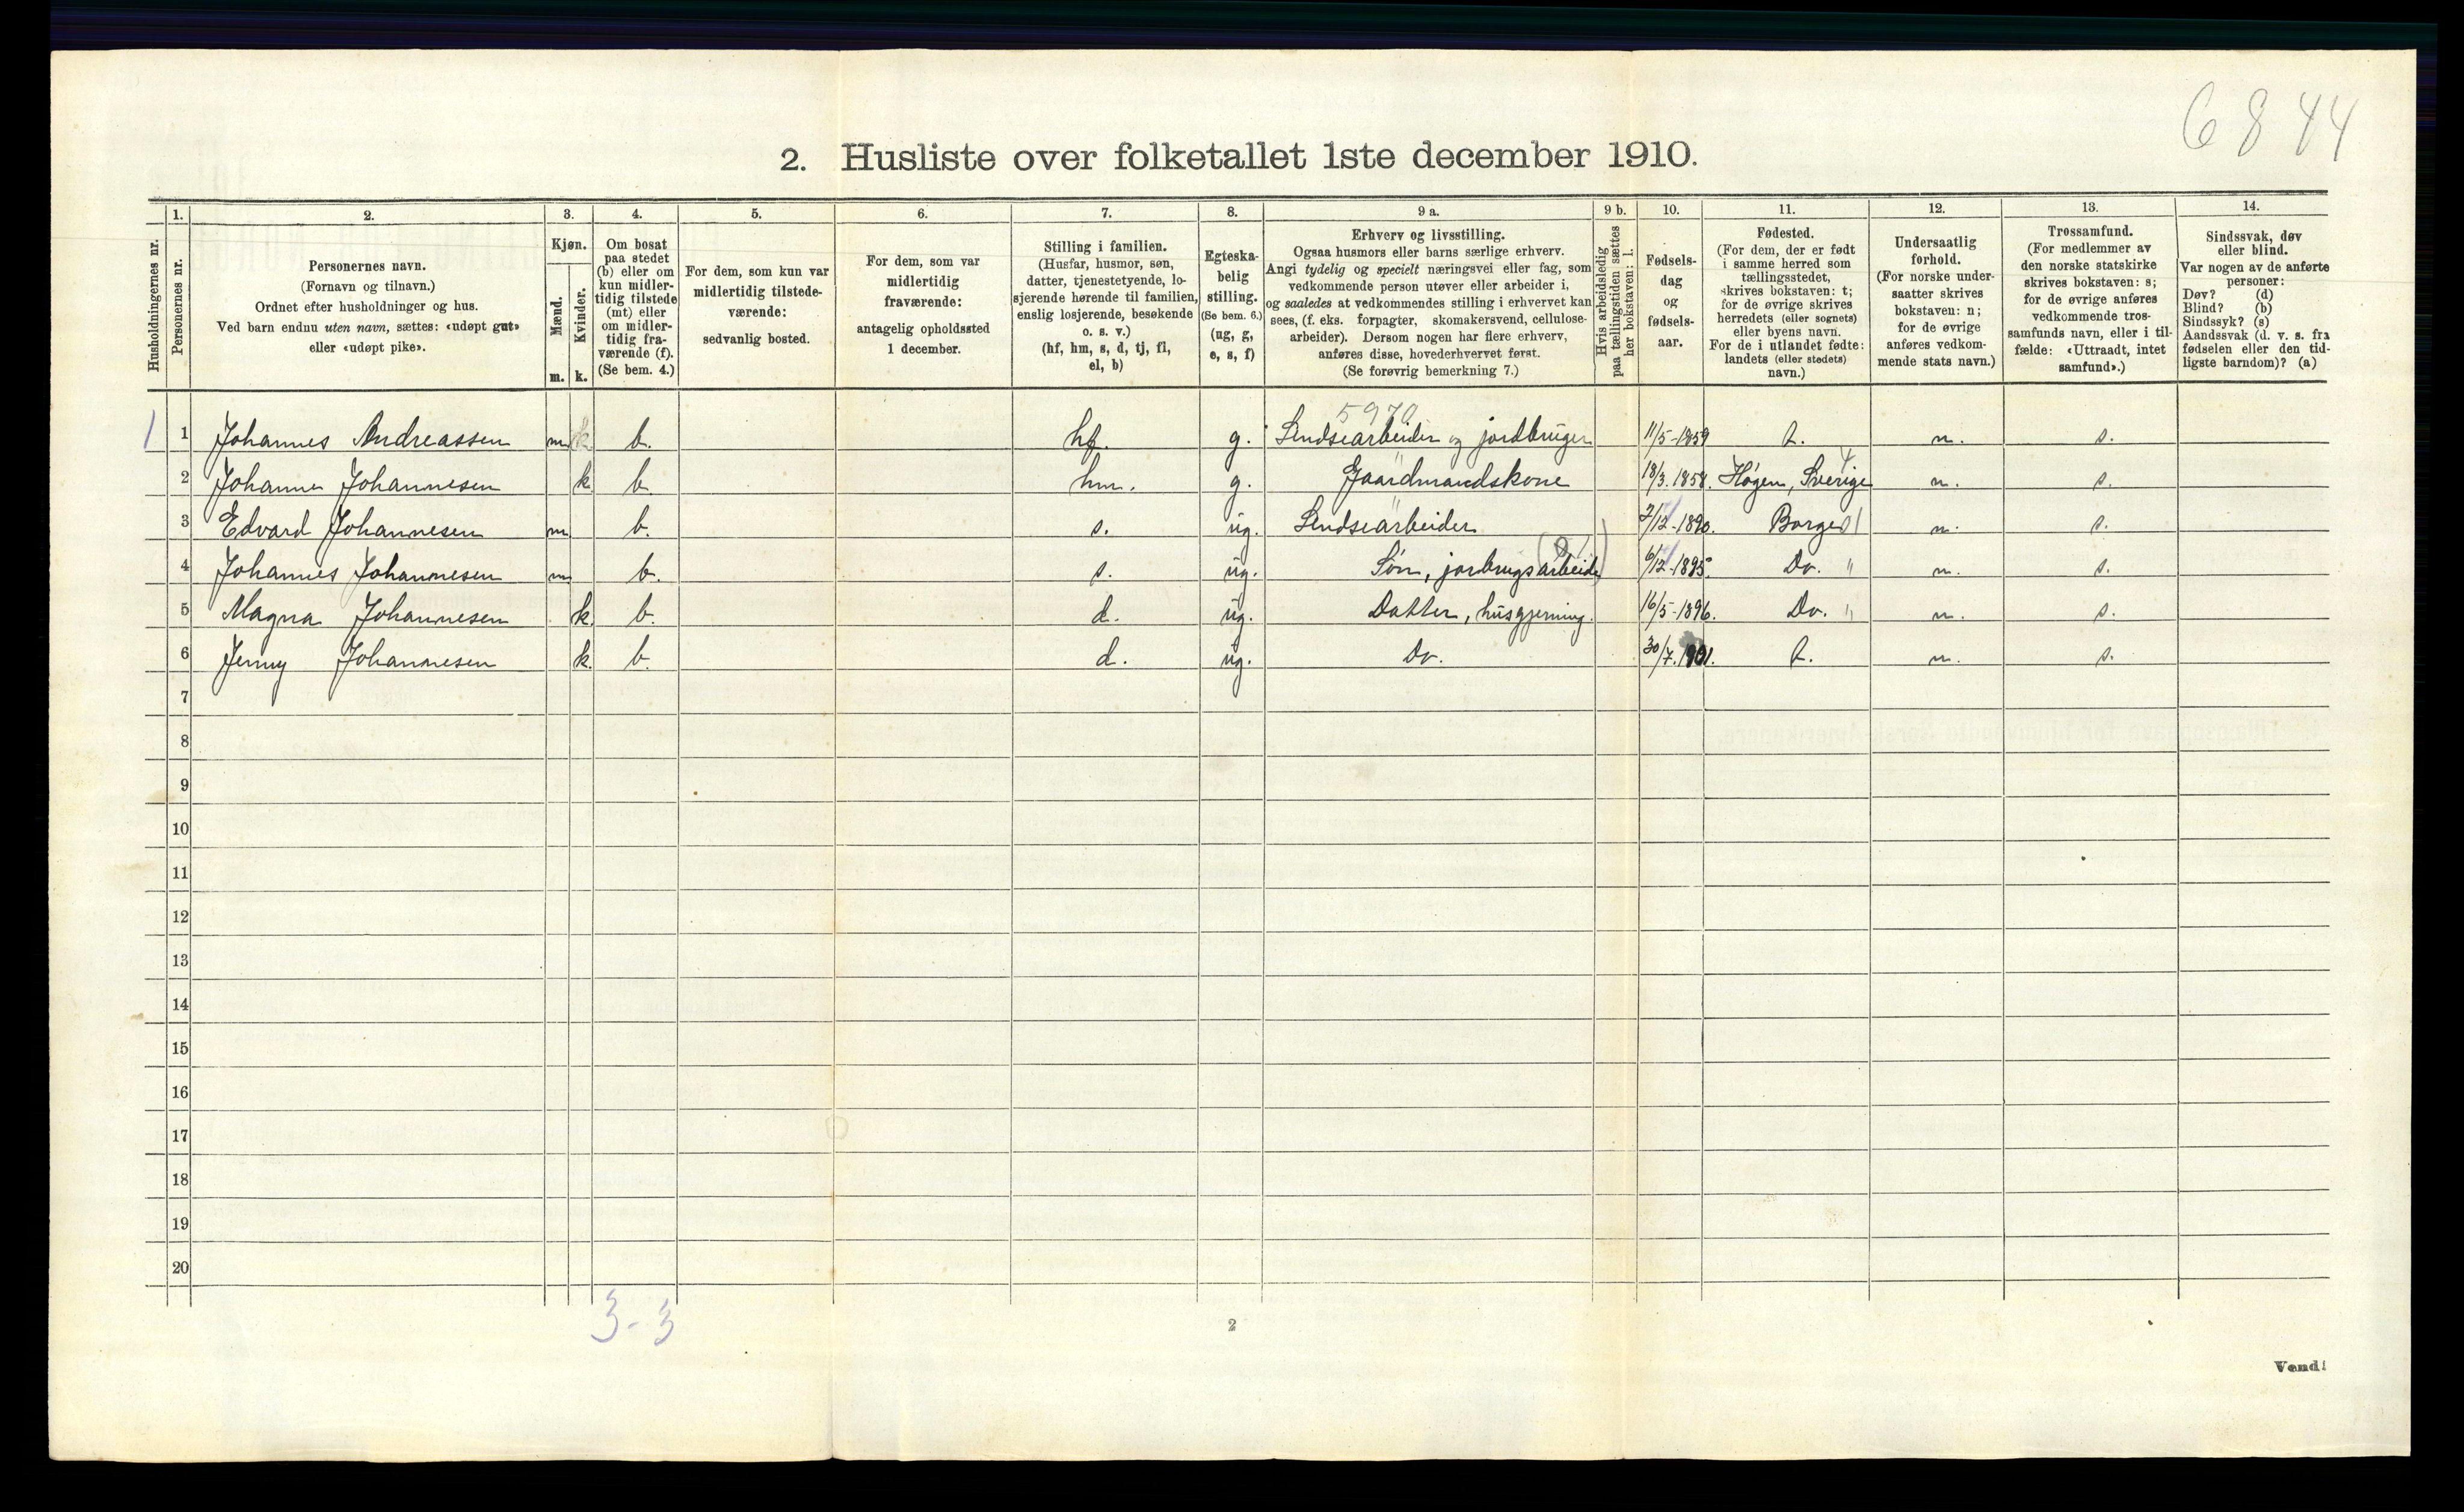 6844
2. Husliste over folketallet 1ste december 1910.
Husholdningernes nr.
1. Personernes nr.
2. Personernes navn.
(Fornavn og tilnavn.)
Ordnet efter husholdninger og hus.
Ved barn endnu uten navn, sættes: «udøpt gut»
eller «udøpt pike».
3. Kjøn.
Mænd. m.
Kvinder. k.
4. Om bosat
paa stedet
(b) eller om
kun midler-
tidig tilstede
(mt) eller
om midler-
tidig fra-
værende (f).
(Se bem. 4.)
5. For dem, som kun var
midlertidig tilstede-
værende:
sedvanlig bosted.
6. For dem, som var
midlertidig
fraværende:
antagelig opholdssted
1 december.
7. Stilling i familien.
(Husfar, husmor, søn,
datter, tjenestetyende, lo-
sjerende hørende til familien,
enslig losjerende, besøkende
o. s. v.)
(hf, hm, s, d, tj, fl,
el, b)
8. Egteska-
belig
stilling.
(Se bem. 6.)
(ug, g,
e, s, f)
9 a. Erhverv og livsstilling.
Ogsaa husmors eller barns særlige erhverv.
Angi tydelig og specielt næringsvei eller fag, som
vedkommende person utøver eller arbeider i,
og saaledes at vedkommendes stilling i erhvervet kan
sees, (f. eks. forpagter, skomakersvend, cellulose-
arbeider). Dersom nogen har flere erhverv,
anføres disse, hovederhvervet først.
(Se forøvrig bemerkning 7.)
9 b. Hvis arbeidsledig
paa tællingstiden sættes
her bokstaven: l.
10. Fødsels-
dag
og
fødsels-
aar.
11. Fødested.
(For dem, der er født
i samme herred som
tællingsstedet,
skrives bokstaven: t;
for de øvrige skrives
herredets (eller sognets)
eller byens navn.
For de i utlandet fødte:
landets (eller stedets)
navn.)
12. Undersaatlig
forhold.
(For norske under-
saatter skrives
bokstaven: n;
for de øvrige
anføres vedkom-
mende stats navn.)
13. Trossamfund.
(For medlemmer av
den norske statskirke
skrives bokstaven: s;
for de øvrige anføres
vedkommende tros-
samfunds navn, eller i til-
fælde: «Uttraadt, intet
samfund».)
14. Sindssvak, døv
eller blind.
Var nogen av de anførte
personer:
Døv? (d)
Blind? (b)
Sindssyk? (s)
Aandssvak (d. v. s. fra
fødselen eller den tid-
ligste barndom)? (a)
5970
1 1 Johannes Andreassen m k b. hf. g. Lendsearbeider og jordbruger 11/5-1859 t. n. s.
2 Johanne Johannesen k b. hm. g. Gaardmandskone 18/3.1858. Høgen, Sverige n. s.
3 Edvard Johannesen m b. s. ug. Lendsearbeider 7/12-1890. Borge n. s.
4 Johannes Johannesen m b. s. ug. Søn, jorbrugsarbeide 6/12-1895. Do. " n. s.
5 Magna Johannesen k. b. d. ug. Datter, husgjerning. 16/5-1896. Do. " n. s.
6 Jenny Johannesen k. b. d. ug. Do. 30/7.1901. t. n. s.
7
8
9
10
11
12
13
14
15
16
17
18
19
20
3-3
2
Vend!